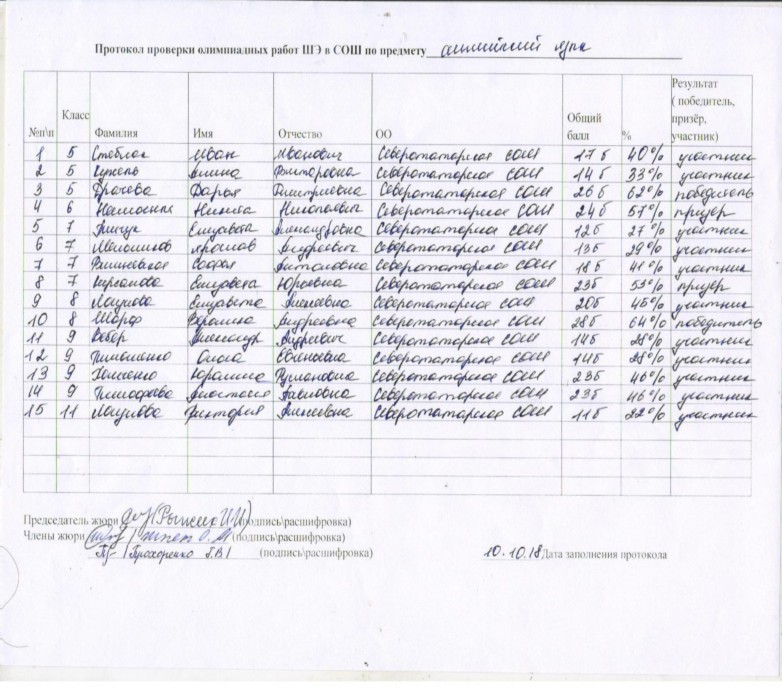 Протокол проверки олимпиадных работ ШЭ в СОШ по предмету английский язык
№п\п Класс Фамилия Имя Отчество ОО Общий балл % Результат ( победитель, призёр, участник)
1 5 Иван Иванович Северотатарская СОШ 17 б 40% участник
2 5 Алина Викторовна Северотатарская СОШ 14 б 33% участник
3 5 Драчева Дарья Дмитриевна Северотатарская СОШ 26 б 62% победитель
4 6 Никита Николаевич Северотатарская СОШ 24 б 57% призер
5 7 Елизавета Александровна Северотатарская СОШ 12 б 27% участник
6 7 Мельников Ярослав Андреевич Северотатарская СОШ 13 б 29% участник
7 7 Софья Антоновна Северотатарская СОШ 18 б 41% участник
8 7 Елизавета Юрьевна Северотатарская СОШ 23 б 53% призер
9 8 Елизавета Алексеевна Северотатарская СОШ 20 б 45% участник
10 8 Шарф Вероника Андреевна Северотатарская СОШ 28 б 64% победитель
11 9 Вебер Александр Андреевич Северотатарская СОШ 14 б 28% участник
12 9 Пилипенко Ольга Евгеньевна Северотатарская СОШ 14 б 28% участник
13 9 Руслановна Северотатарская СОШ 23 б 46% участник
14 9 Анастасия Павловна Северотатарская СОШ 23 б 46% участник
15 11 Виктория Алексеевна Северотатарская СОШ 11 б 22% участник
Председатель жюри (подпись\расшифровка)
Члены жюри (подпись\расшифровка)
Прохоренко Г.В. (подпись\расшифровка) 10.10.18 Дата заполнения протокола